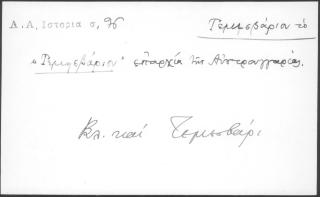 Α.Α, Ιστορία σ, 96 Τεμισβάριον τό
"Τεμισβάριον" επαρχία της Αυστροουγγαρίας.
Βλ. καί Τεμεσβάρι